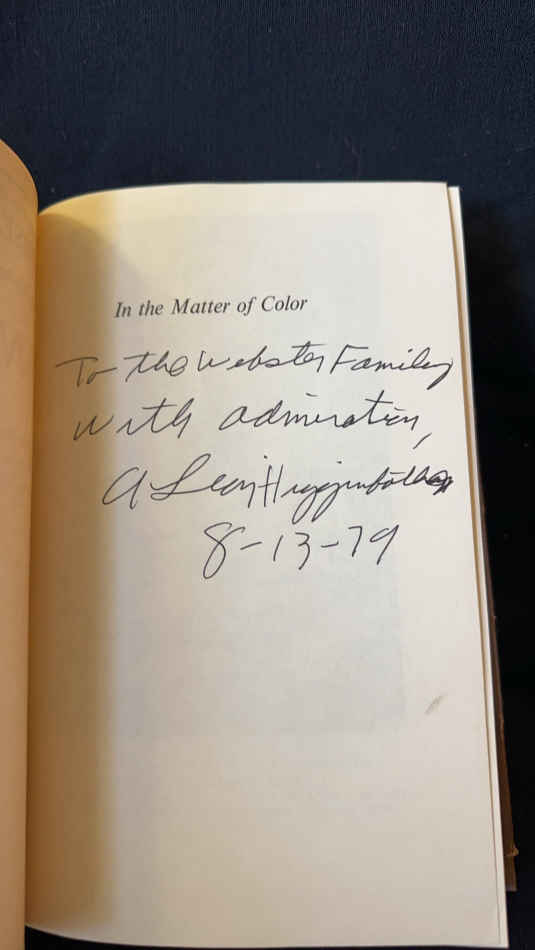 In the Matter of Color
To the Webster Family
With admiration,
A Leon Higginbotham
8-13-79